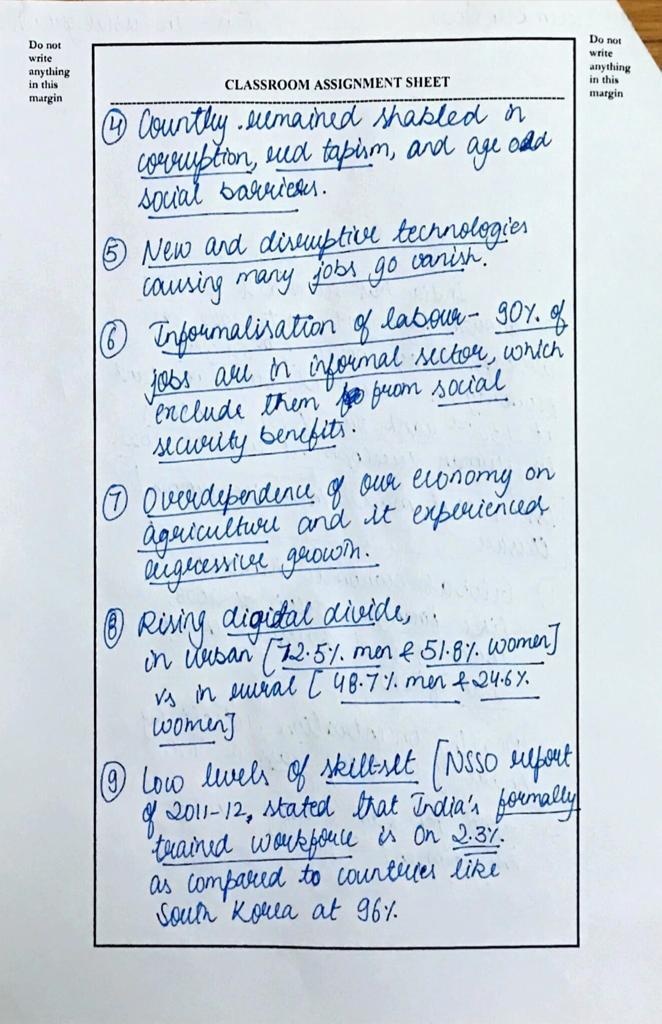 Do not
write
anything
in this
margin
Do not
write
anything
in this
margin
CLASSROOM ASSIGNMENT SHEET
④ Country remained shabled in
corruption, red tapism, and age old
social barriers.
⑤ New and disruptive technologies
causing many jobs go vanish.
⑥ Informalisation of labour - 90% of
jobs are in informal sector, which
exclude them from social
security benefits.
⑦ Overdependence of our economy on
agriculture and it experienced
regressive growth.
⑧ Rising digital divide,
in urban [72.5% men & 51.8% women]
vs in rural [48.7% men & 24.6%
women]
⑨ Low levels of skill-set [NSSO report
of 2011-12, stated that India's formally
trained workforce is on 2.3%
as compared to countries like
South Korea at 96%.